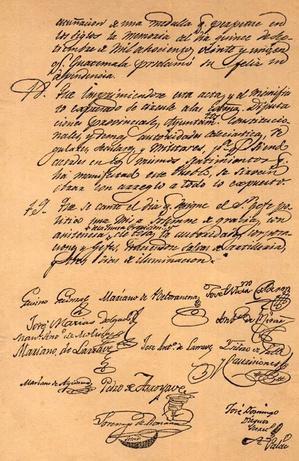 acuñacion de una medalla q.e perpetue en
los siglos la memoria del dia quince de Se-
tiembre de mil ochocientos veinte y uno, en
q.e Guatemala proclamó su feliz in-
dependencia.
18. Que imprimiendose esta acta, y el Manifies-
to expresado se circule á las Diputa-
ciones Provinciales, Ayuntam.tos Constitucio-
nales, y demas autoridades eclesiasticas, re-
gulares, seculares, y militares, p.a q.e siendo
en los mismos sentimientos q.e
ha manifestado este Pueblo, se sirvan
obrar con arreglo á todo lo expuesto.
19. Que se cante el dia q.e designe el S.or Gefe
Politico una misa solemne de gracias, con
asistencia de todas las autoridades, corpora-
ciones y Gefes, haciendose salvas de artilleria
y tres dias de iluminacion.
Gavino Gainza
Mariano de Beltranena
José Matias Delgado
Mariano de Larrave
José Ant.o de Larrave
Mariano de Aycinena
Pedro de Arroyave
Lorenzo de Romaña
José Domingo
Dieguez